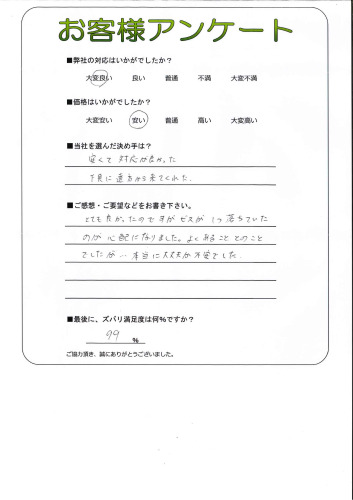 お客様アンケート
■弊社の対応はいかがでしたか？
大変良い 良い 普通 不満 大変不満
■価格はいかがでしたか？
大変安い 安い 普通 高い 大変高い
■当社を選んだ決め手は？
安くて 対応が良かった
下見に 遠方から来てくれた
■ご感想・ご要望などをお書き下さい。
とても良かったのですが ビスが 1つ落ちていた
のが 心配になりました。よくあること とのこと
でしたが 本当に大丈夫か不安でした
■最後に、ズバリ満足度は何%ですか？
99 %
ご協力頂き、誠にありがとうございました。